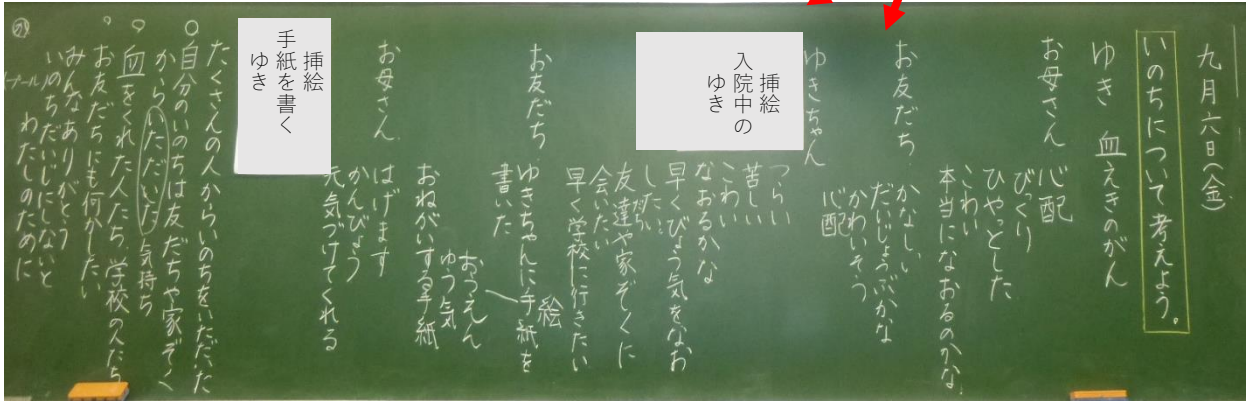 九月六日(金)
いのちについて考えよう。
ゆき 血えきのがん
お母さん 心配
びっくり
ひやっとした
こわい
本当になおるのかな
お友だち かなしい
だいじょうぶかな
かわいそう
心配
ゆきちゃん
つらい
苦しい
こわい
なおるかな
早くびょう気をなお
したい
友達や家ぞくに
会いたい
早く学校に行きたい
挿絵
入院中の
ゆき
お友だち ゆきちゃんに手紙を
書いた
絵
おうえん
ゆう気
おねがいする手紙
お母さん はげます
かんびょう
元気づけてくれる
挿絵
手紙を書く
ゆき
たくさんの人からいのちをいただいた
○自分のいのちは友だちや家ぞく
からいただいた気持ち
血をくれた人たち、学校の人たち
お友だちにも何かしたい
みんなありがとう
いのちだいじにしないと
わたしのために